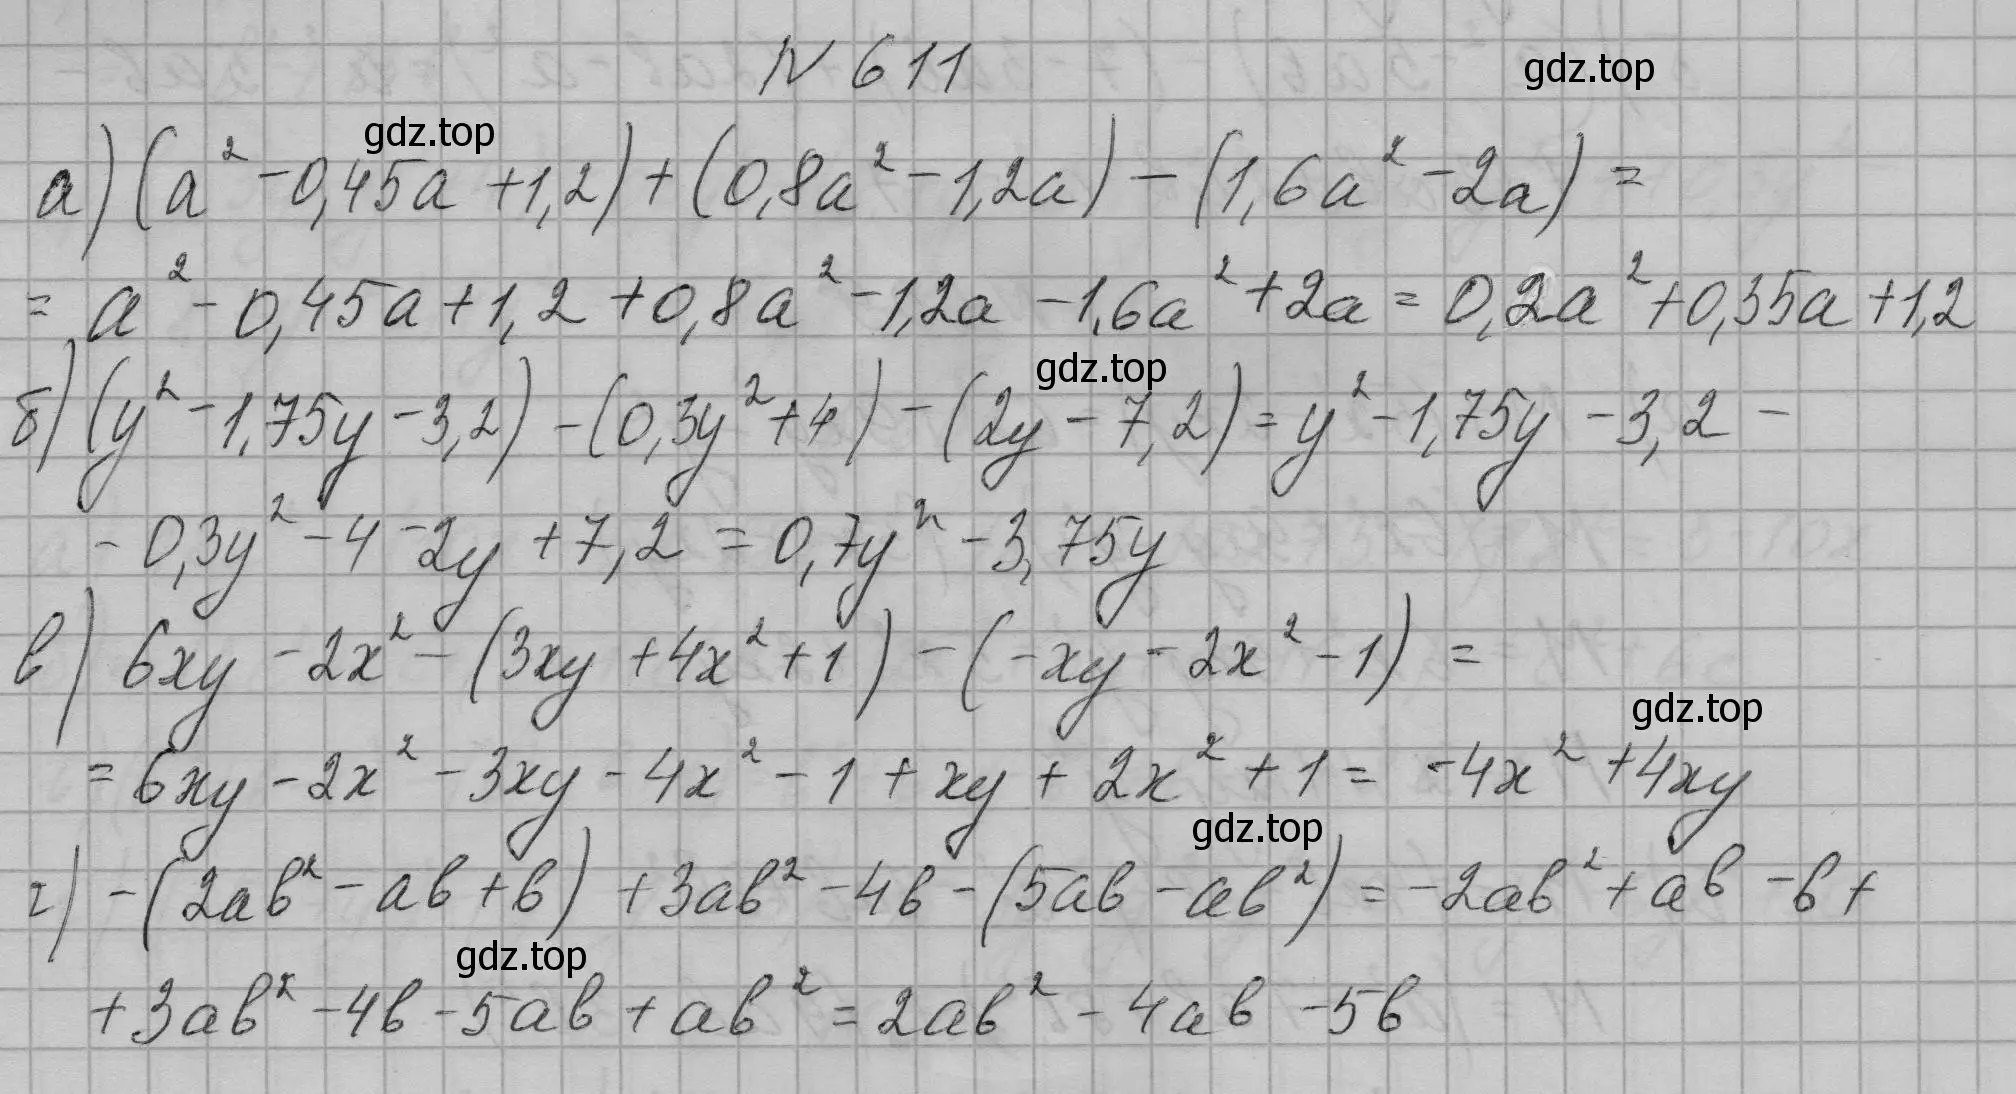 N 611
gdz.top
gdz.top
а) (a² - 0,45a + 1,2) + (0,8a² - 1,2a) - (1,6a² - 2a) =
= a² - 0,45a + 1,2 + 0,8a² - 1,2a - 1,6a² + 2a = 0,2a² + 0,35a + 1,2
gdz.top
б) (y² - 1,75y - 3,2) - (0,3y² + 4) - (2y - 7,2) = y² - 1,75y - 3,2 -
- 0,3y² - 4 - 2y + 7,2 = 0,7y² - 3,75y
в) 6xy - 2x² - (3xy + 4x² + 1) - (-xy - 2x² - 1) =
gdz.top
= 6xy - 2x² - 3xy - 4x² - 1 + xy + 2x² + 1 = -4x² + 4xy
gdz.top
г) -(2ab² - ab + b) + 3ab² - 4b - (5ab - ab²) = -2ab² + ab - b +
gdz.top
+ 3ab² - 4b - 5ab + ab² = 2ab² - 4ab - 5b